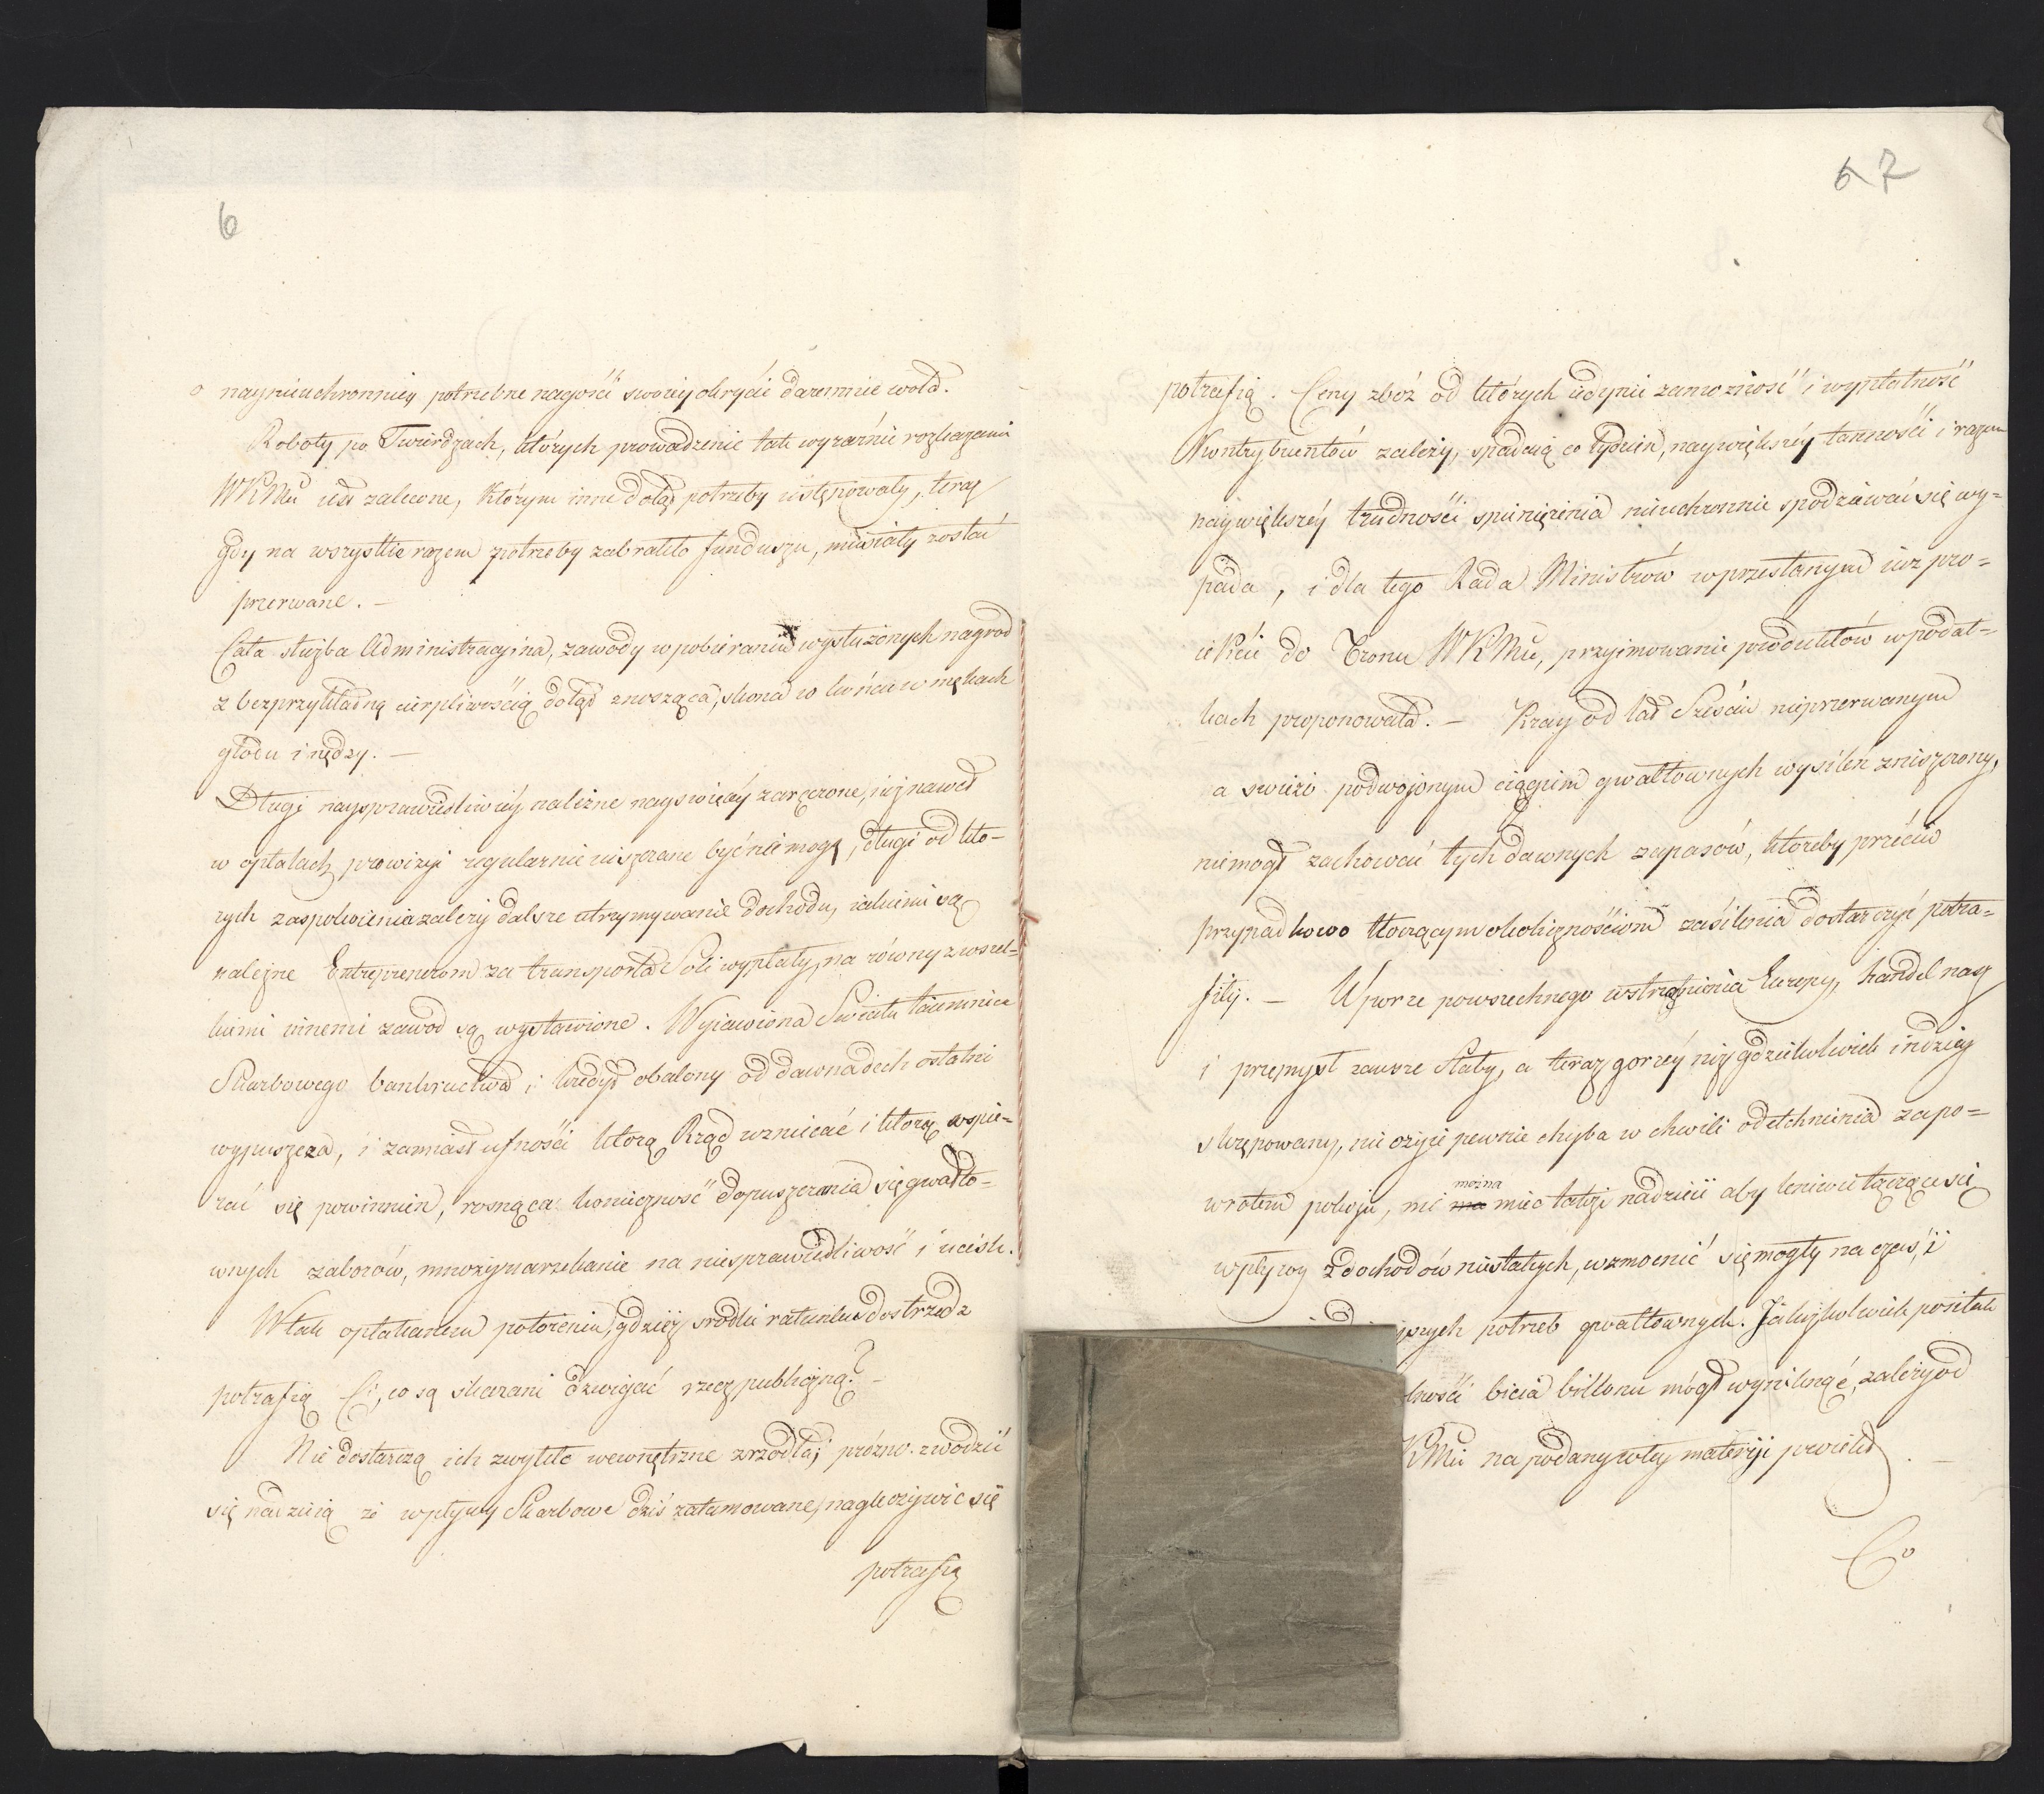 6
o nayniuchronniey potrzebne nagości swoiey okrycie daremnie woła.
Roboty po Twierdzach, których prowadzenie tak wyraźnie rozkazami
WKMci iest zalecone, którym inne dotąd potrzeby ustępowały, teraz
gdy na wszystkie razem potrzeby zabrakło funduszu, musiały zostać
przerwane. —
Cała służba Administracyina, zawody w pobieraniu wysłużonych nagrod
z bezprzykładną cierpliwością dotąd znosząca, skona w końcu w mękach
głodu i nędzy. —
Długi naysprawiedliwiéy należne nayswięciéy zaręczone, iéż nawet
w opłatach prowizyi regularnie uiszczane być nie mogą, długi od któ-
rych zaspokoienia zależy dalsze utrzymywanie dochodu, iakiemi są
należne Entreprenerom za transporta Soli wypłaty, na równy z wszel-
kiemi innemi zawod są wystawione. Wyiawiona Światu taiemnica
Skarbowego bankructwa i kredyt obalony od dawna dech ostatni
wypuszcza, i zamiast ufności którą Rząd wzniecać i którą wspie-
rać się powinnien, rosnąca konieczność dopuszczania się gwałto-
wnych zaborów, mnoży narzekanie na niesprawiedliwość i ucisk.
W tak opłakanem położeniu, gdzież srodki ratunku dostrzedz
potrafią Ci, co są skazani dzwigać rzecz publiczną? —
Nie dostarczą ich zwykłe wewnętrzne zrzodła; próżno zwodzić
się nadzieią że wpływy Skarbowe dziś zatamowane, nagle ożywić się
potrafią
6 7
potrafią. Ceny zbóż od których iedynie zamożność i wypłatność
Kontrybuentów zależy, spadaią co tydzień, naywiększéy tanności i razem
naywiększéy trudności spieniężenia niuchronnie spodziewać się wy=
pada, i dla tego Rada Ministrów w przesłanym iuż pro=
iekcie do Tronu WKMci, przyimowanie produktów w podat=
kach proponowała. — Kray od lat Sześciu nieprzerwanym
a świeżo podwojonym ciągiem gwałtownych wysileń zniszczony,
niemógł zachować tych dawnych zapasów, któreby przeciw
przypadkowo tłoczącym okolicznościom zasilenia dostarczyć potra=
fiły. — W porze powszechnego wstrząśnienia Europy, handel nasz
i przemysł zawsze słaby, a teraz gorzéy niż gdziekolwiek indziej
skrępowany, nie ożyie pewnie chyba w chwili odetchnienia za po=
wrotem pokoju, nie ma można mieć także nadzieii aby leniwie łączące się
wpływy z dochodów niestałych, wzmocnić się mogły na czas, i
iszych potrzeb gwałtownych. Jakiżkolwiek posiłek
kości bicia billonu mógł wyniknąć, zależy od
KMci na podany w téy materyi proiekt. —
Co